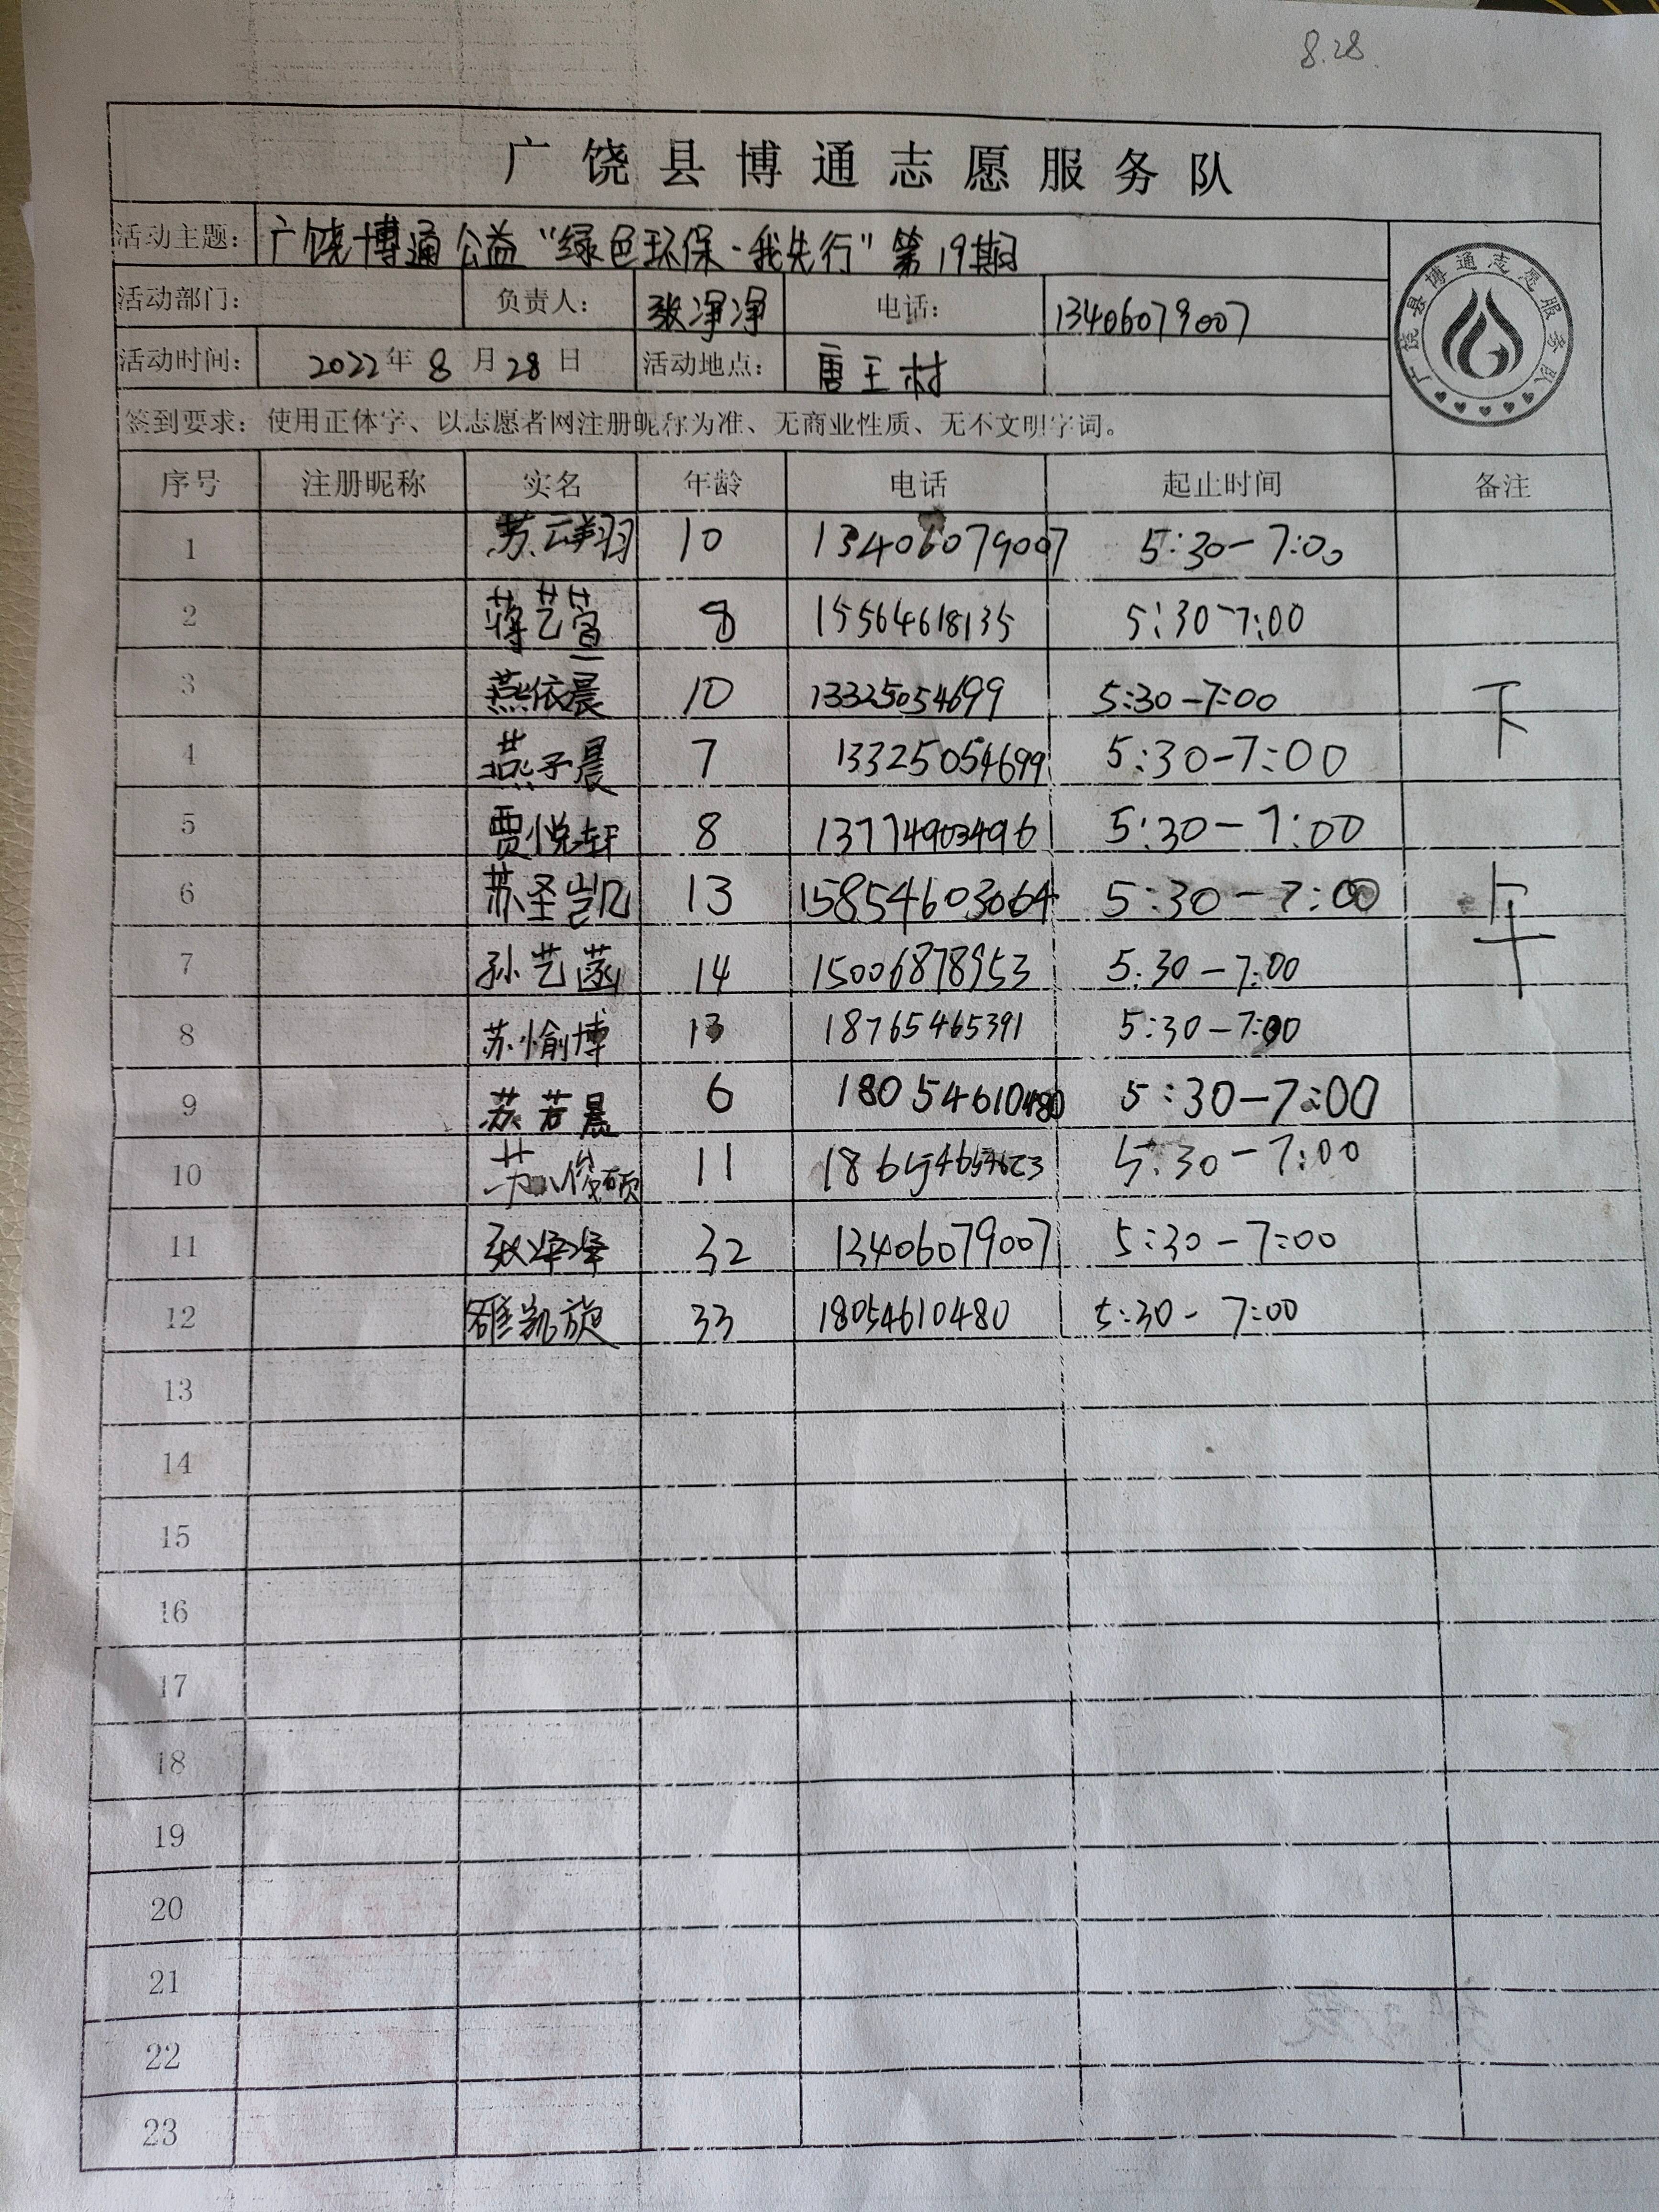 8.28
广饶县博通志愿服务队
活动主题： 广饶博通公益“绿色环保·我先行”第19期
活动部门： 负责人： 张净净 电话： 13406079007
活动时间： 2022年8月28日 活动地点： 唐王村
广饶县博通志愿服务队
签到要求：使用正体字、以志愿者网注册昵称为准、无商业性质、无不文明字词。
序号 注册昵称 实名 年龄 电话 起止时间 备注
1 苏云翔 10 13406079007 5:30-7:00
2 蒋艺萱 8 15564618135 5:30-7:00
3 燕依晨 10 13325054699 5:30-7:00 下
4 燕子晨 7 13325054699 5:30-7:00
5 贾悦轩 8 13774903496 5:30-7:00
6 苏圣凯 13 15854603064 5:30-7:00 午
7 孙艺菡 14 15006878953 5:30-7:00
8 苏愉博 13 18765465391 5:30-7:00
9 苏若晨 6 18054610480 5:30-7:00
10 苏俊硕 11 5:30-7:00
11 张净净 32 13406079007 5:30-7:00
12 凯旋 33 18054610480 5:30-7:00
13
14
15
16
17
18
19
20
21
22
23